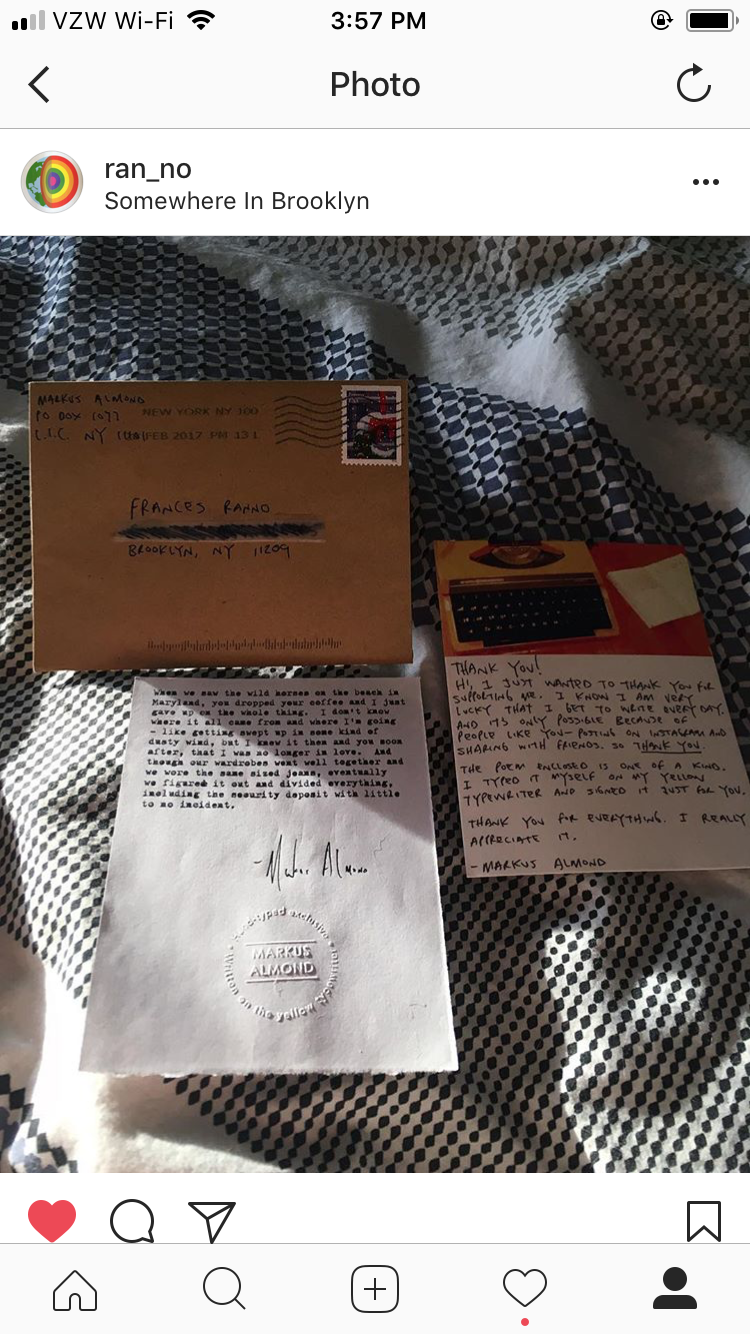 VZW Wi-Fi
3:57 PM
Photo
ran_no
Somewhere In Brooklyn
MARKUS ALMOND
PO BOX 1077
L.I.C. NY
NEW YORK NY 100
FEB 2017 PM 13 L
FRANCES RANNO
BROOKLYN, NY 11209
When we saw the wild horses on the beach in
Maryland, you dropped your coffee and I just
gave up on the whole thing. I don't know
where it all came from and where I'm going
- like getting swept up in some kind of
dusty wind, but I knew it then and you soon
after, that I was no longer in love. And
though our wardrobes went well together and
we wore the same sized jeans, eventually
we figured it out and divided everything,
including the security deposit with little
to no incident.
- Markus Almond
Hand-typed exclusive
MARKUS
ALMOND
Written on the yellow typewriter
THANK YOU!
HI, I JUST WANTED TO THANK YOU FOR
SUPPORTING ME. I KNOW I AM VERY
LUCKY THAT I GET TO WRITE EVERY DAY.
AND IT'S ONLY POSSIBLE BECAUSE OF
PEOPLE LIKE YOU- POSTING ON INSTAGRAM AND
SHARING WITH FRIENDS. SO THANK YOU.
THE POEM ENCLOSED IS ONE OF A KIND.
I TYPED IT MYSELF ON MY YELLOW
TYPEWRITER AND SIGNED IT JUST FOR YOU.
THANK YOU FOR EVERYTHING. I REALLY
APPRECIATE IT.
- MARKUS ALMOND